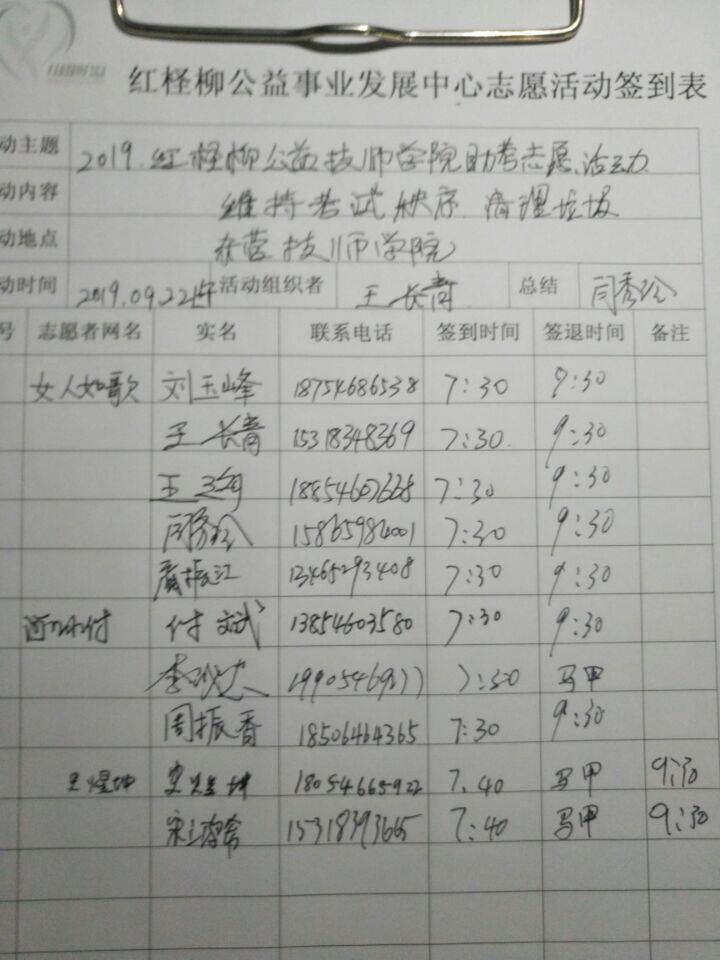 红柽柳公益事业发展中心志愿活动签到表
动主题 2019.红柽柳公益技师学院助考志愿活动
动内容 维持考试秩序 清理垃圾
动地点 东营技师学院
动时间 2019.09.22上午 活动组织者 王长青 总结 闫秀玲
号 志愿者网名 实名 联系电话 签到时间 签退时间 备注
女人如歌 刘玉峰 18754686538 7:30 9:30
王长青 15318348369 7:30. 9:30
王 7:30 9:30
闫秀玲 15865982001 7:30 9:30
振江 13465293408 7:30 9:30
付文斌 13854603580 7:30 9:30
李 7:30 马甲
周振香 18506464365 7:30 9:30
坤 18054665922 7.40 马甲 9:30
宋 15318393665 7:40 马甲 9:30